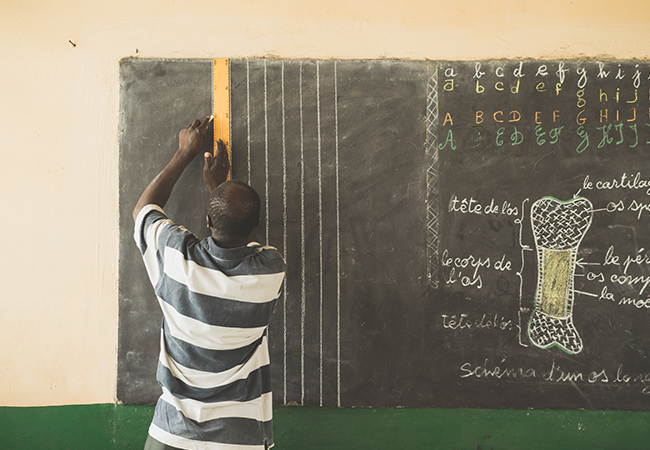 a b c d e f g h i j
a b c d e f g h i j
A B C D E F G H I J
A B C D E F G H I J
le cartilag
tête de l'os
os sp
le corps de
l'os
le pér
os comp
la moe
tête de l'os
Schéma d'un os lo